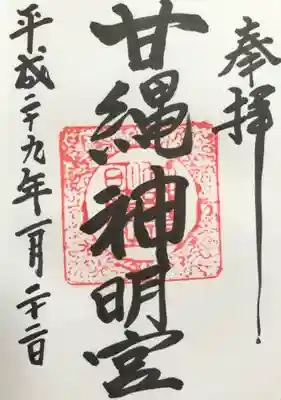 奉拝
甘縄神明宮
平成二十九年一月二十二日